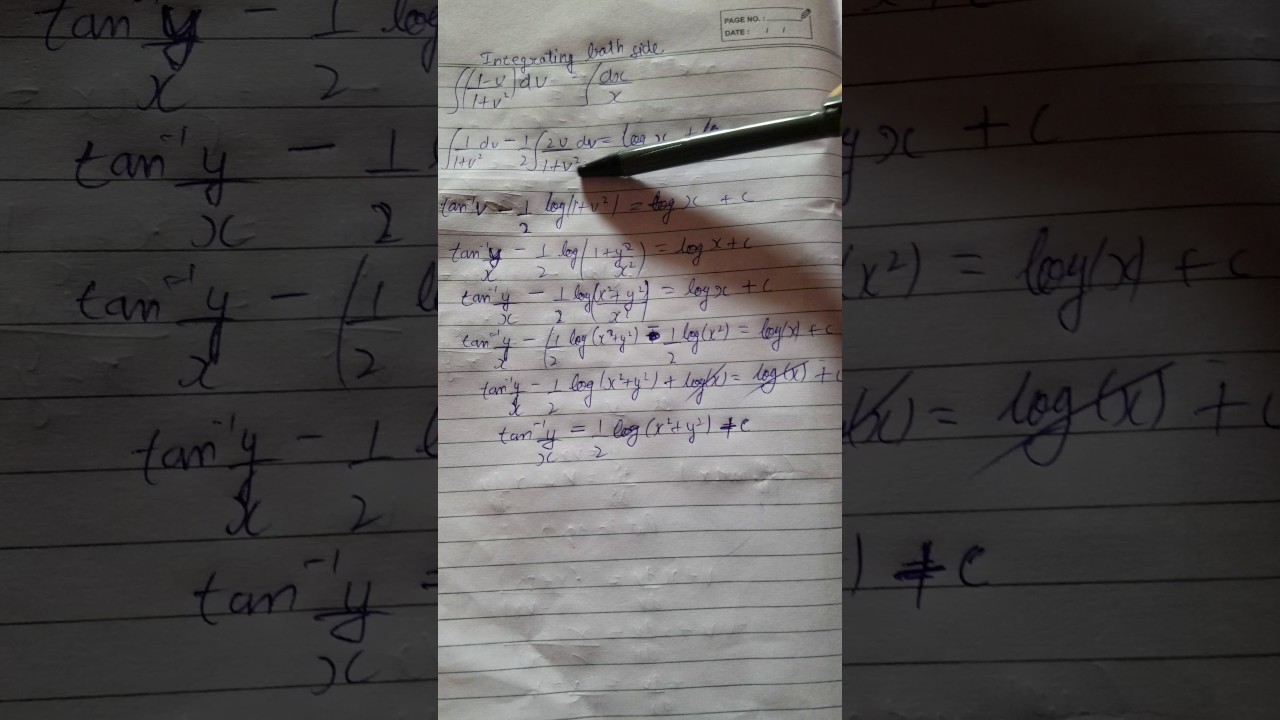 PAGE NO.:
DATE: / /
Integrating bath side
∫(1-v/1+v²)dv = ∫dx/x
∫1/1+v² dv - 1/2∫2v/1+v² dv = log x +
tan⁻¹v - 1/2 log|1+v²| = log x + c
tan⁻¹y/x - 1/2 log(1+y²/x²) = log x + c
tan⁻¹y/x - 1/2 log(x²+y²/x²) = log x + c
tan⁻¹y/x - (1/2 log(x²+y²) - 1/2 log(x²) = log(x) + c
tan⁻¹y/x - 1/2 log(x²+y²) + log(x) = log(x) + c
tan⁻¹y/x = 1/2 log(x²+y²) + c